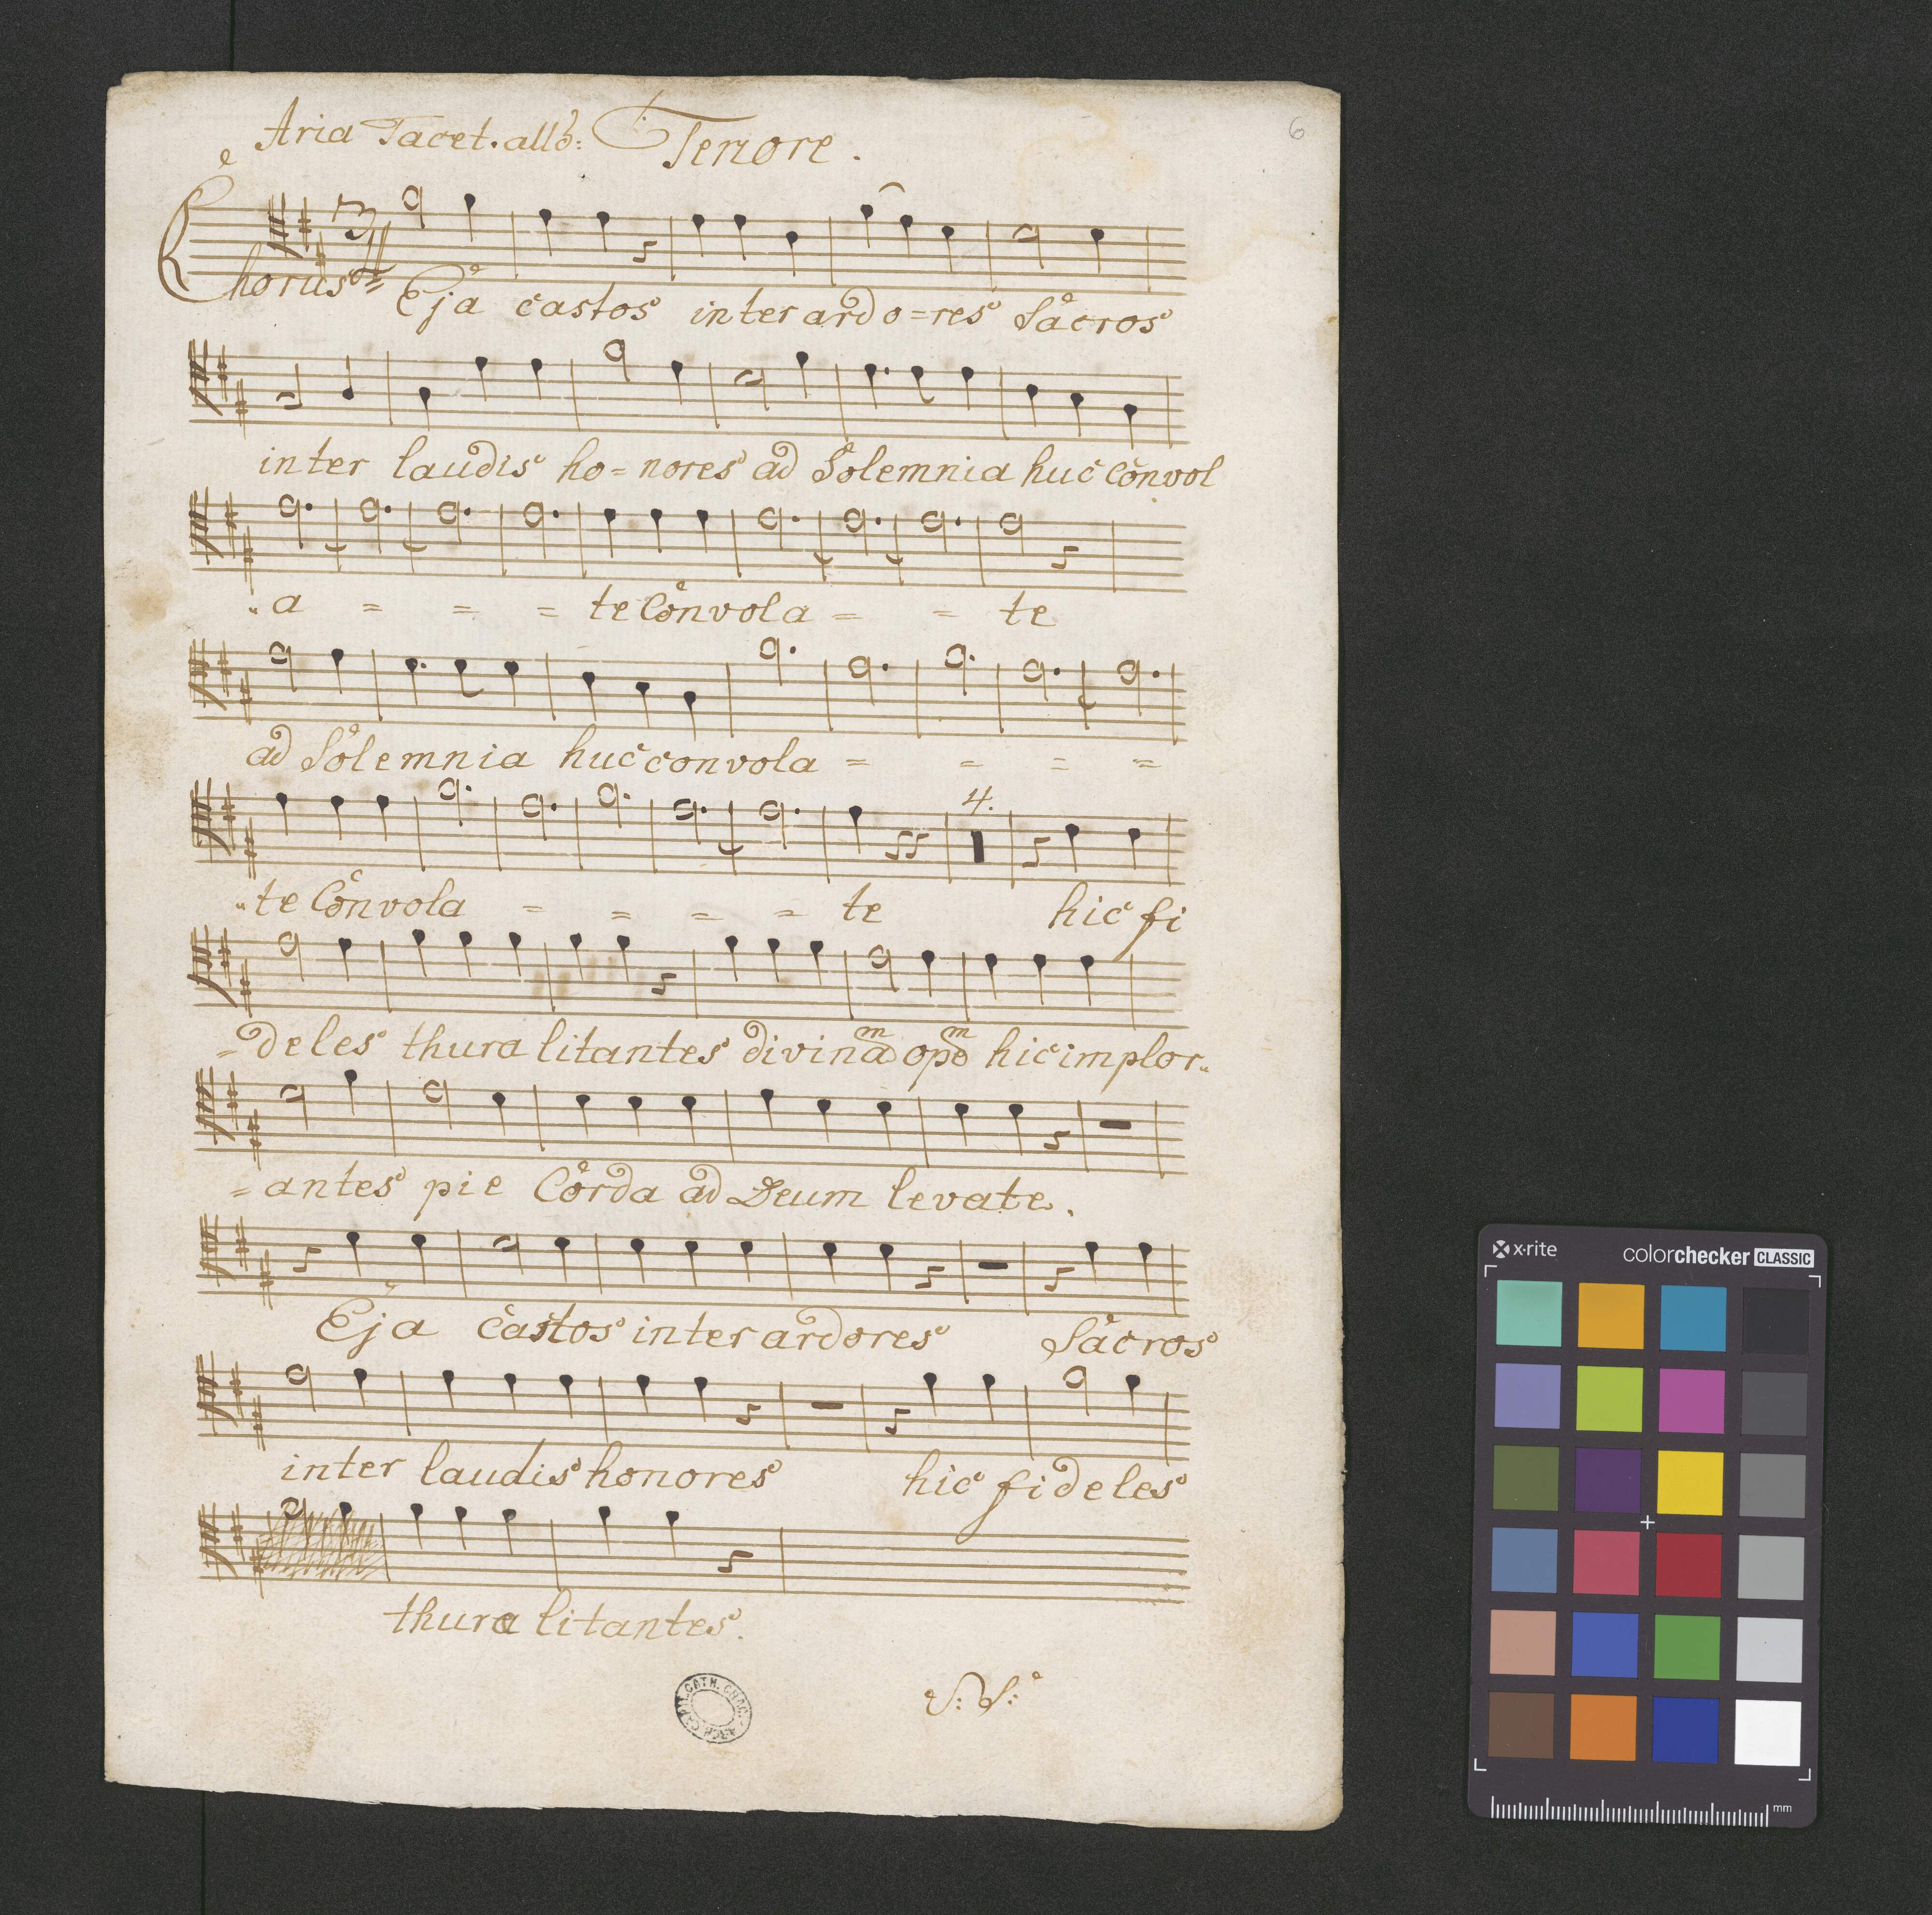 Aria Tacet. allo: Tenore.
6
Chorus Eja castos inter ardo=res Sacros
inter laudis ho=nores ad Solemnia huc convol
„a = = = te Convola = = te
ad Solemnia huc convola = = = =
„te Convola = = = = te hic fi
4.
=deles thura litantes divinam opem hic implor„
=antes pie Corda ad Deum levate.
Eja castos inter ardores Sacros
inter laudis honores hic fideles
thura litantes.
V: S:
x·rite colorchecker CLASSIC
mm